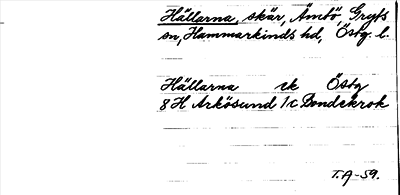 Hällarna, skär, Ämtö, Gryts
sn, Hammarkinds hd, Östg. l.
Hällarna sk Östg
8H Arkösund 1c Dondekrok
T.A-59.